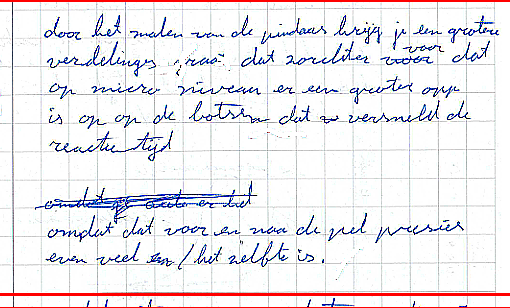 door het malen van de pindaas krijg je een grotere
verdelings graat dat zorchter voor dat
op micro niveau er een groter opp
is op op de botsen dat versneld de
reactie tijd
omdat dat voor en naa de pel precies
even veel / het zelfde is.